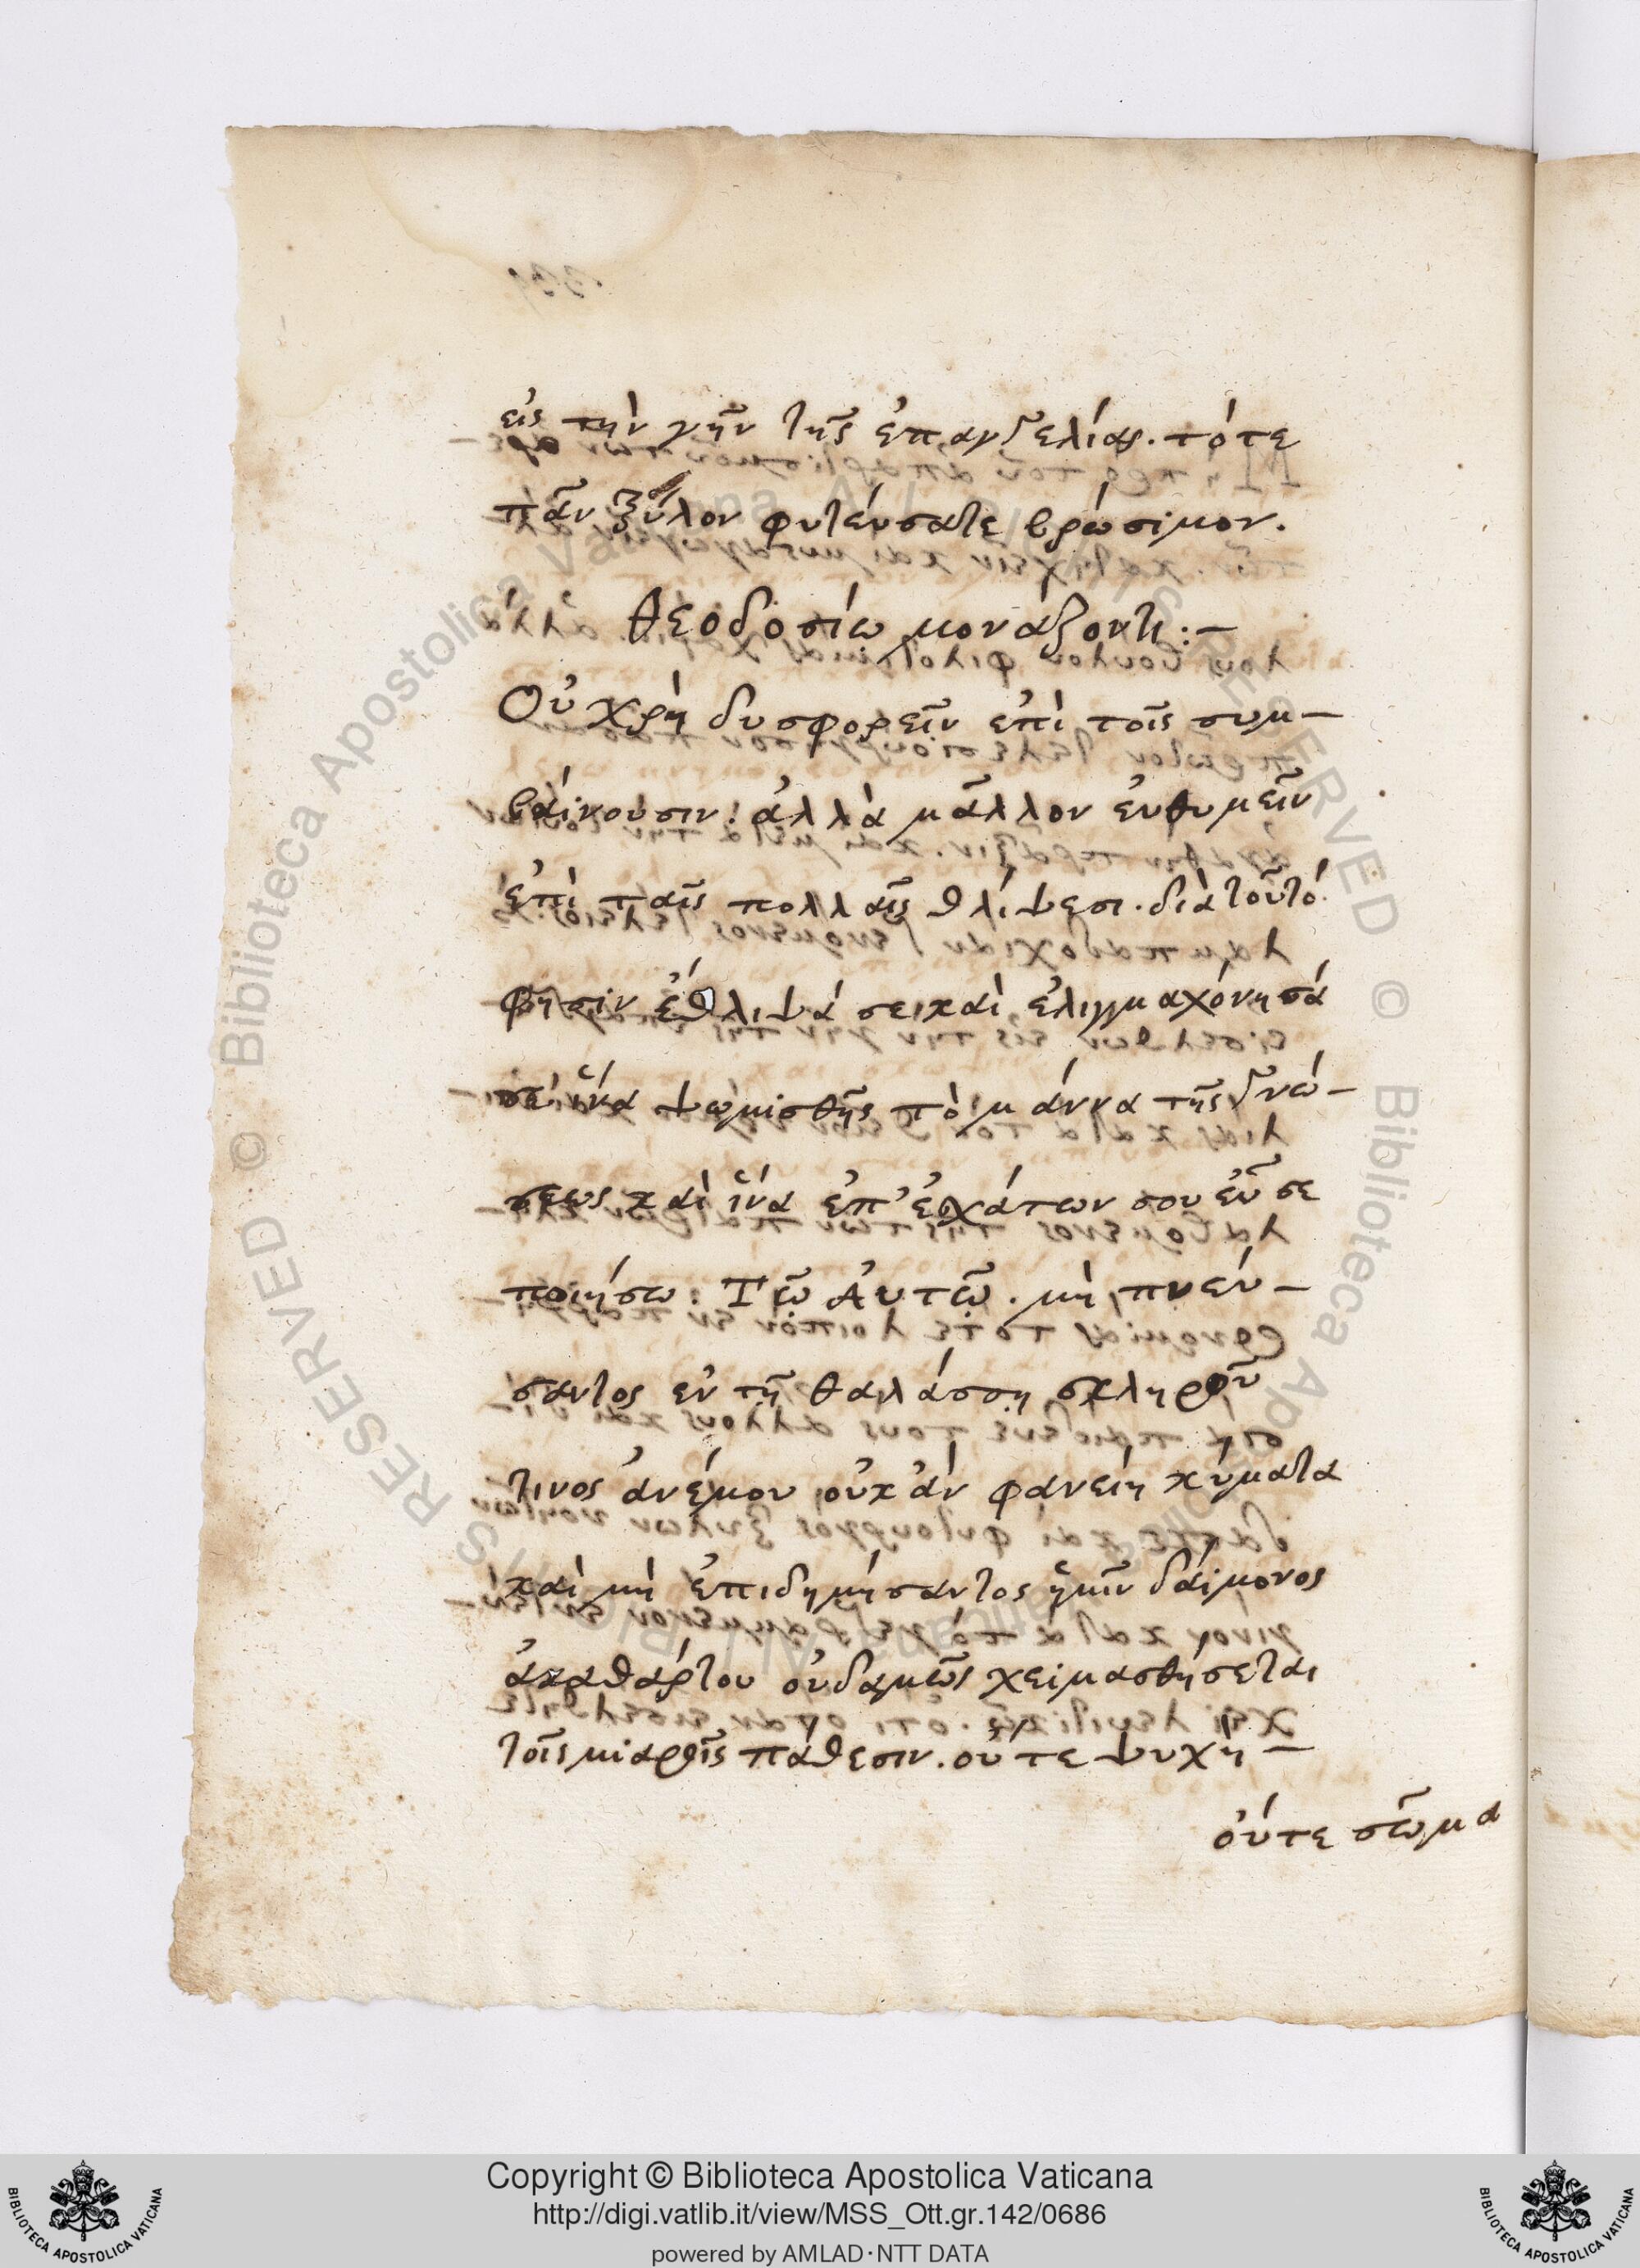 εἰς τὴν γῆν τῆς ἐπανγελίας. τότε
πᾶν ξύλον φυτεύσατε βρώσιμον.
θεοδοσίω μονάζοντι :–
Οὐ χρὴ δυσφορεῖν ἐπὶ τοῖς συμ–
βαίνουσιν. ἀλλὰ μᾶλλον ἐυθυμεῖν
ἐπὶ ταῖς πολλαῖς θλίψεσι. διὰ τοῦτό
φησιν ἔθλιψά σε καὶ ἐλιμμαχόνησά
σε ἵνα ψωμισθῆς τὸ μάννα τῆς γνώ–
σεως καὶ ἵνα ἐπ' ἐσχάτων σου ἐῦ σε
ποιήσω. Τῶ Αυτῶ. μὴ πνεύ–
σαντος ἐν τῆ θαλάσση σκληροῦ
τινος ἀνέμου οὐκ ἀν φανείη κύματα
καὶ μὴ ἐπιδημήσαντος ἡμῖν δαίμονος
ἀκαθάρτου οὐδαμῶς χειμασθήσεται
τοῖς μιαροῖς πάθεσιν. οὔτε ψυχὴ –
οὔτε σῶμα
Copyright © Biblioteca Apostolica Vaticana
http://digi.vatlib.it/view/MSS_Ott.gr.142/0686
powered by AMLAD·NTT DATA
BIBLIOTECA APOSTOLICA VATICANA
BIBLIOTECA APOSTOLICA VATICANA